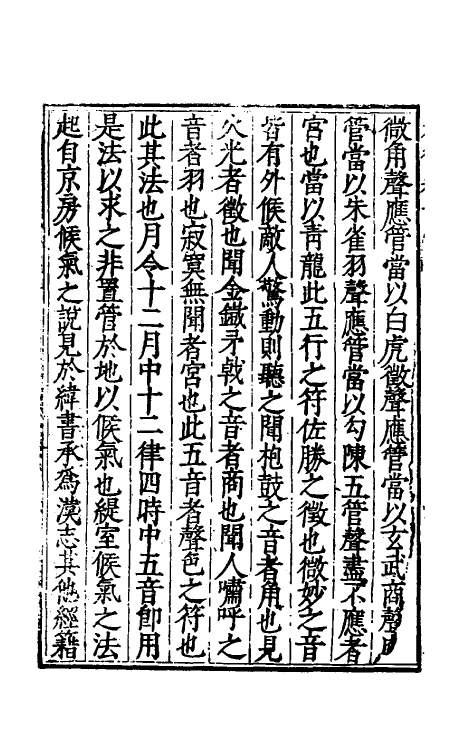 微角聲應管當以白虎徵聲應管當以玄武商聲應
管當以朱雀羽聲應管當以勾陳五管聲盡不應者
宮也當以青龍此五行之符佐勝之徵也微妙之音
皆有外候敵人驚動則聽之聞枹鼓之音者角也見
火光者徵也聞金鐵矛戟之音者商也聞人嘯呼之
音者羽也寂寞無聞者宮也此五音者聲色之符也
此其法也月令十二月中十二律四時中五音卽用
是法以求之非置管於地以候氣也緹室候氣之法
起自京房候氣之說見於緯書承爲漢志其他經籍